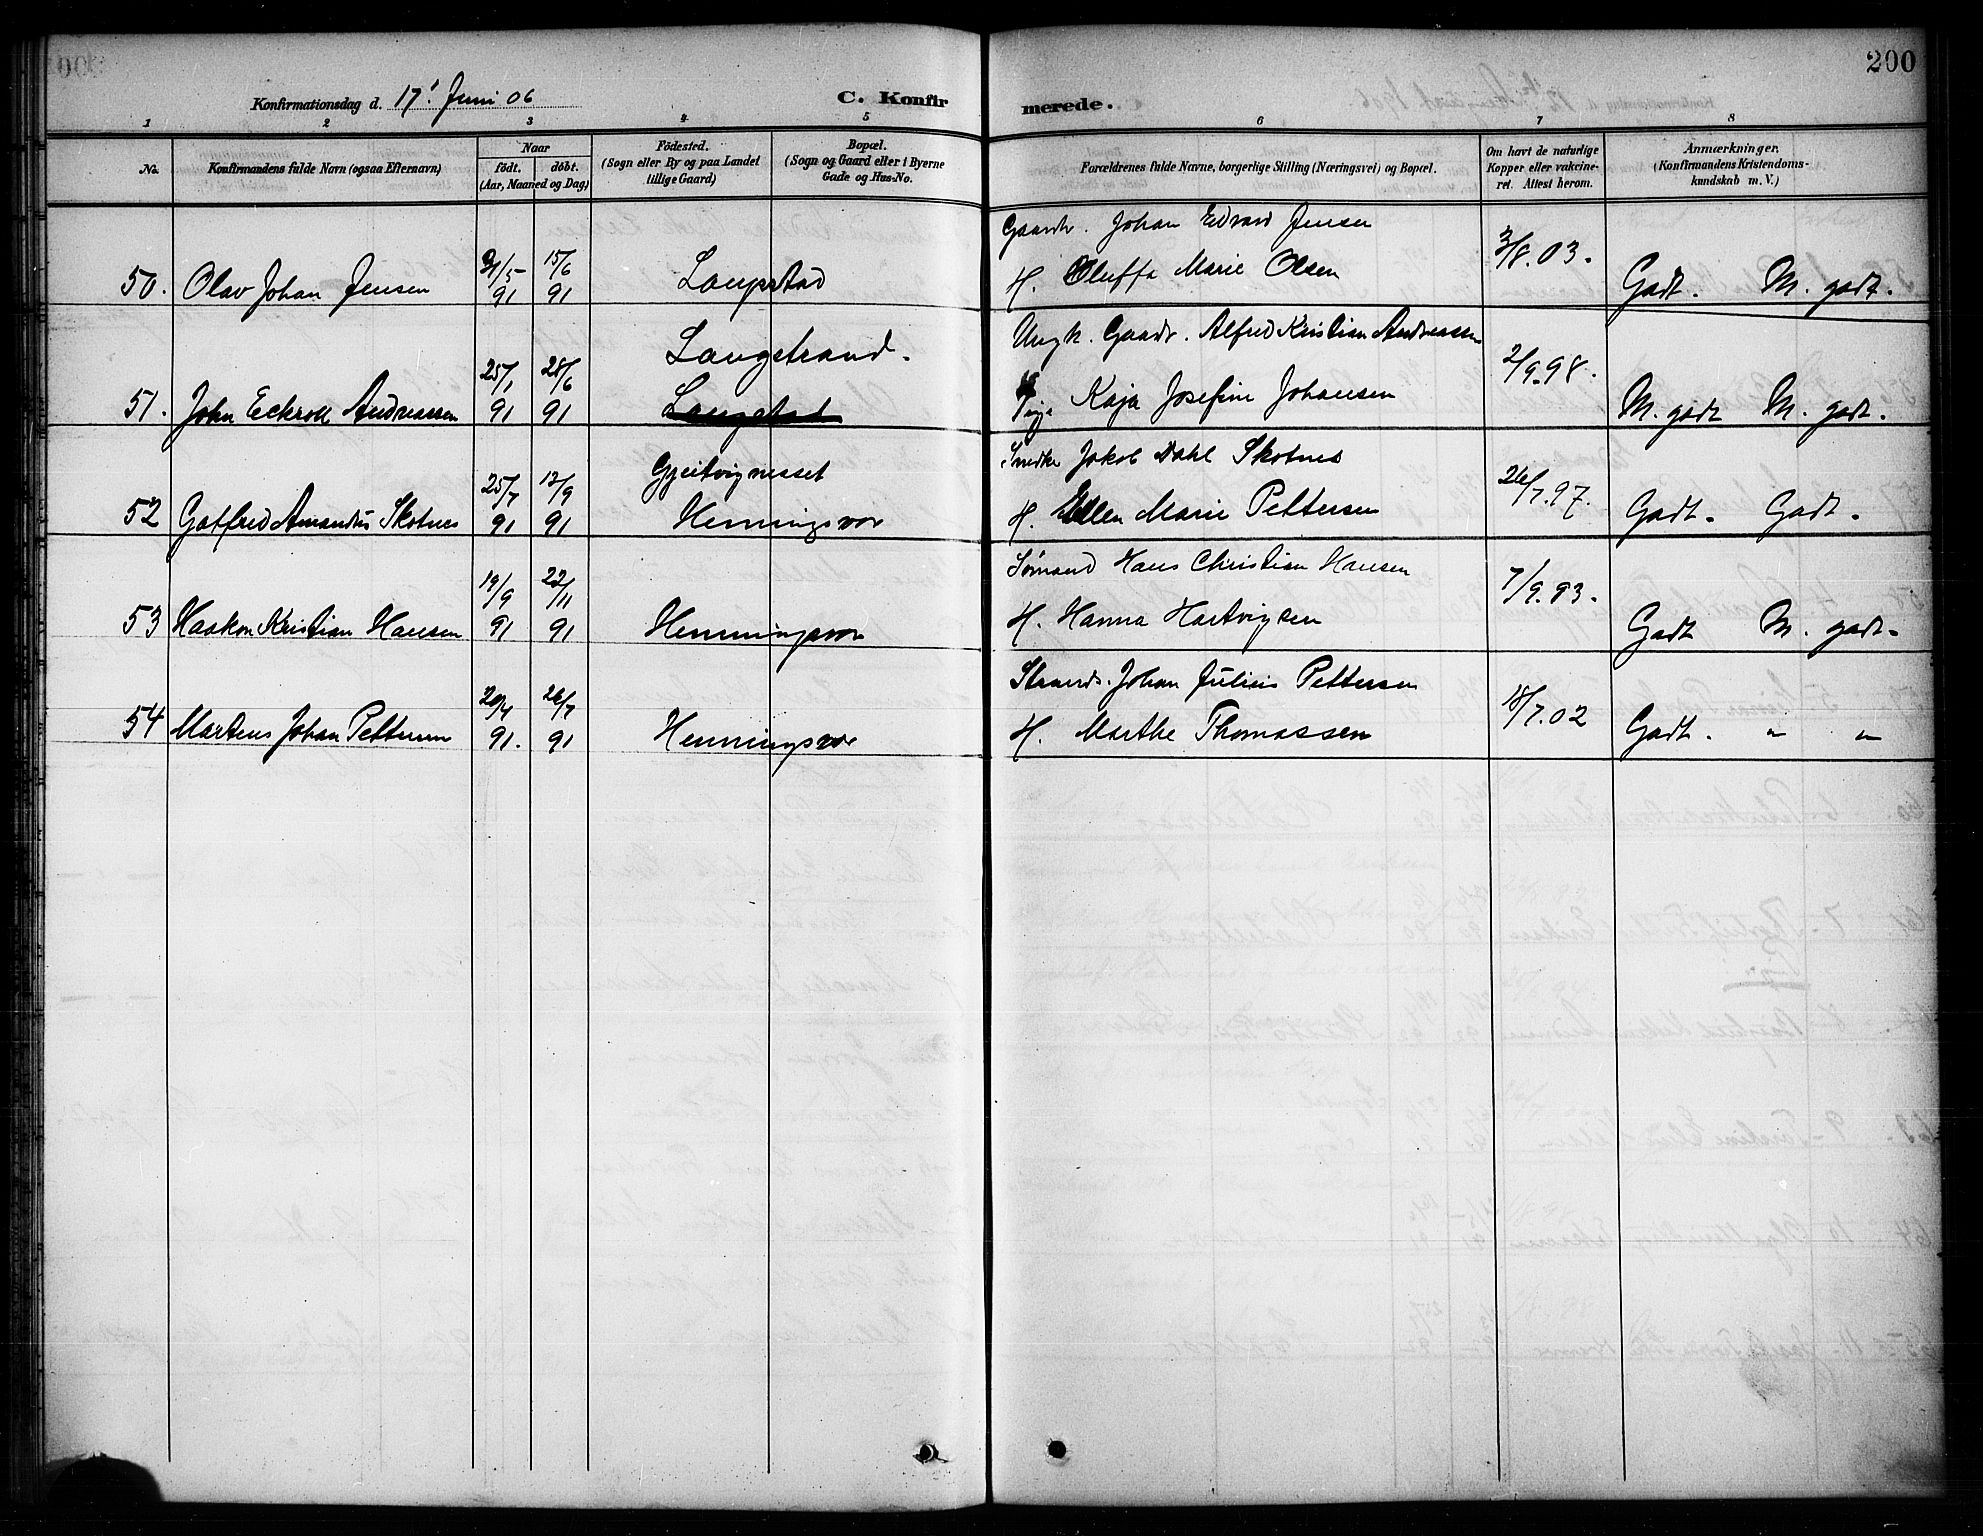 200
Konfirmationsdag d. 17' Juni 06
C. Konfirmerede.
1 2 3 4 5 6 7 8
No. Konfirmandens fulde Navn (ogsaa Efternavn) Naar født. døbt. (Aar, Maaned og Dag) Fødested. (Sogn eller By og paa Landet tillige Gaard) Bopæl. (Sogn og Gaard eller i Byerne Gade og Hus-No. Forældrenes fulde Navne, borgerlige Stilling (Næringsvei) og Bopæl. Om havt de naturlige Kopper eller vakcineret. Attest herom. Anmærkninger. (Konfirmandens Kristendomskundskab m. V.)
Gaardbr. Johan Edvard Jensen
50. Olav Johan Jensen 31/5 91 15/6 91 Laupstad H. Oluffa Marie Olsen 3/8.03. Godt. M. godt.
Ungk. Gaadr. Alfred Kristian Andreassen
Laugstrand.
51. John Eckroll Andreassen 25/1 91 28/6 91 Pige Kaja Josefine Johansen 2/9.98. M. godt M. godt.
Snedker Jakob Dahl Skotnes
Gjeitvignesset
52 Gotfred Amandus Skotnes 25/7 91 13/9 91 Henningsvær H. Ellen Marie Pettersen 26/7.97. Godt. Godt.
Sømand Hans Christian Hansen
53 Haakon Kristian Hansen 19/9 91 22/11 91 Henningsvær H. Hanna Hartvigsen 7/9.93. Godt M. godt.
Strands. Johan Julius Pettersen
54 Martens Johan Pettersen 20/4 91. 26/7 91 Henningsvær H. Marthe Thomassen 18/7.02 Godt. " "